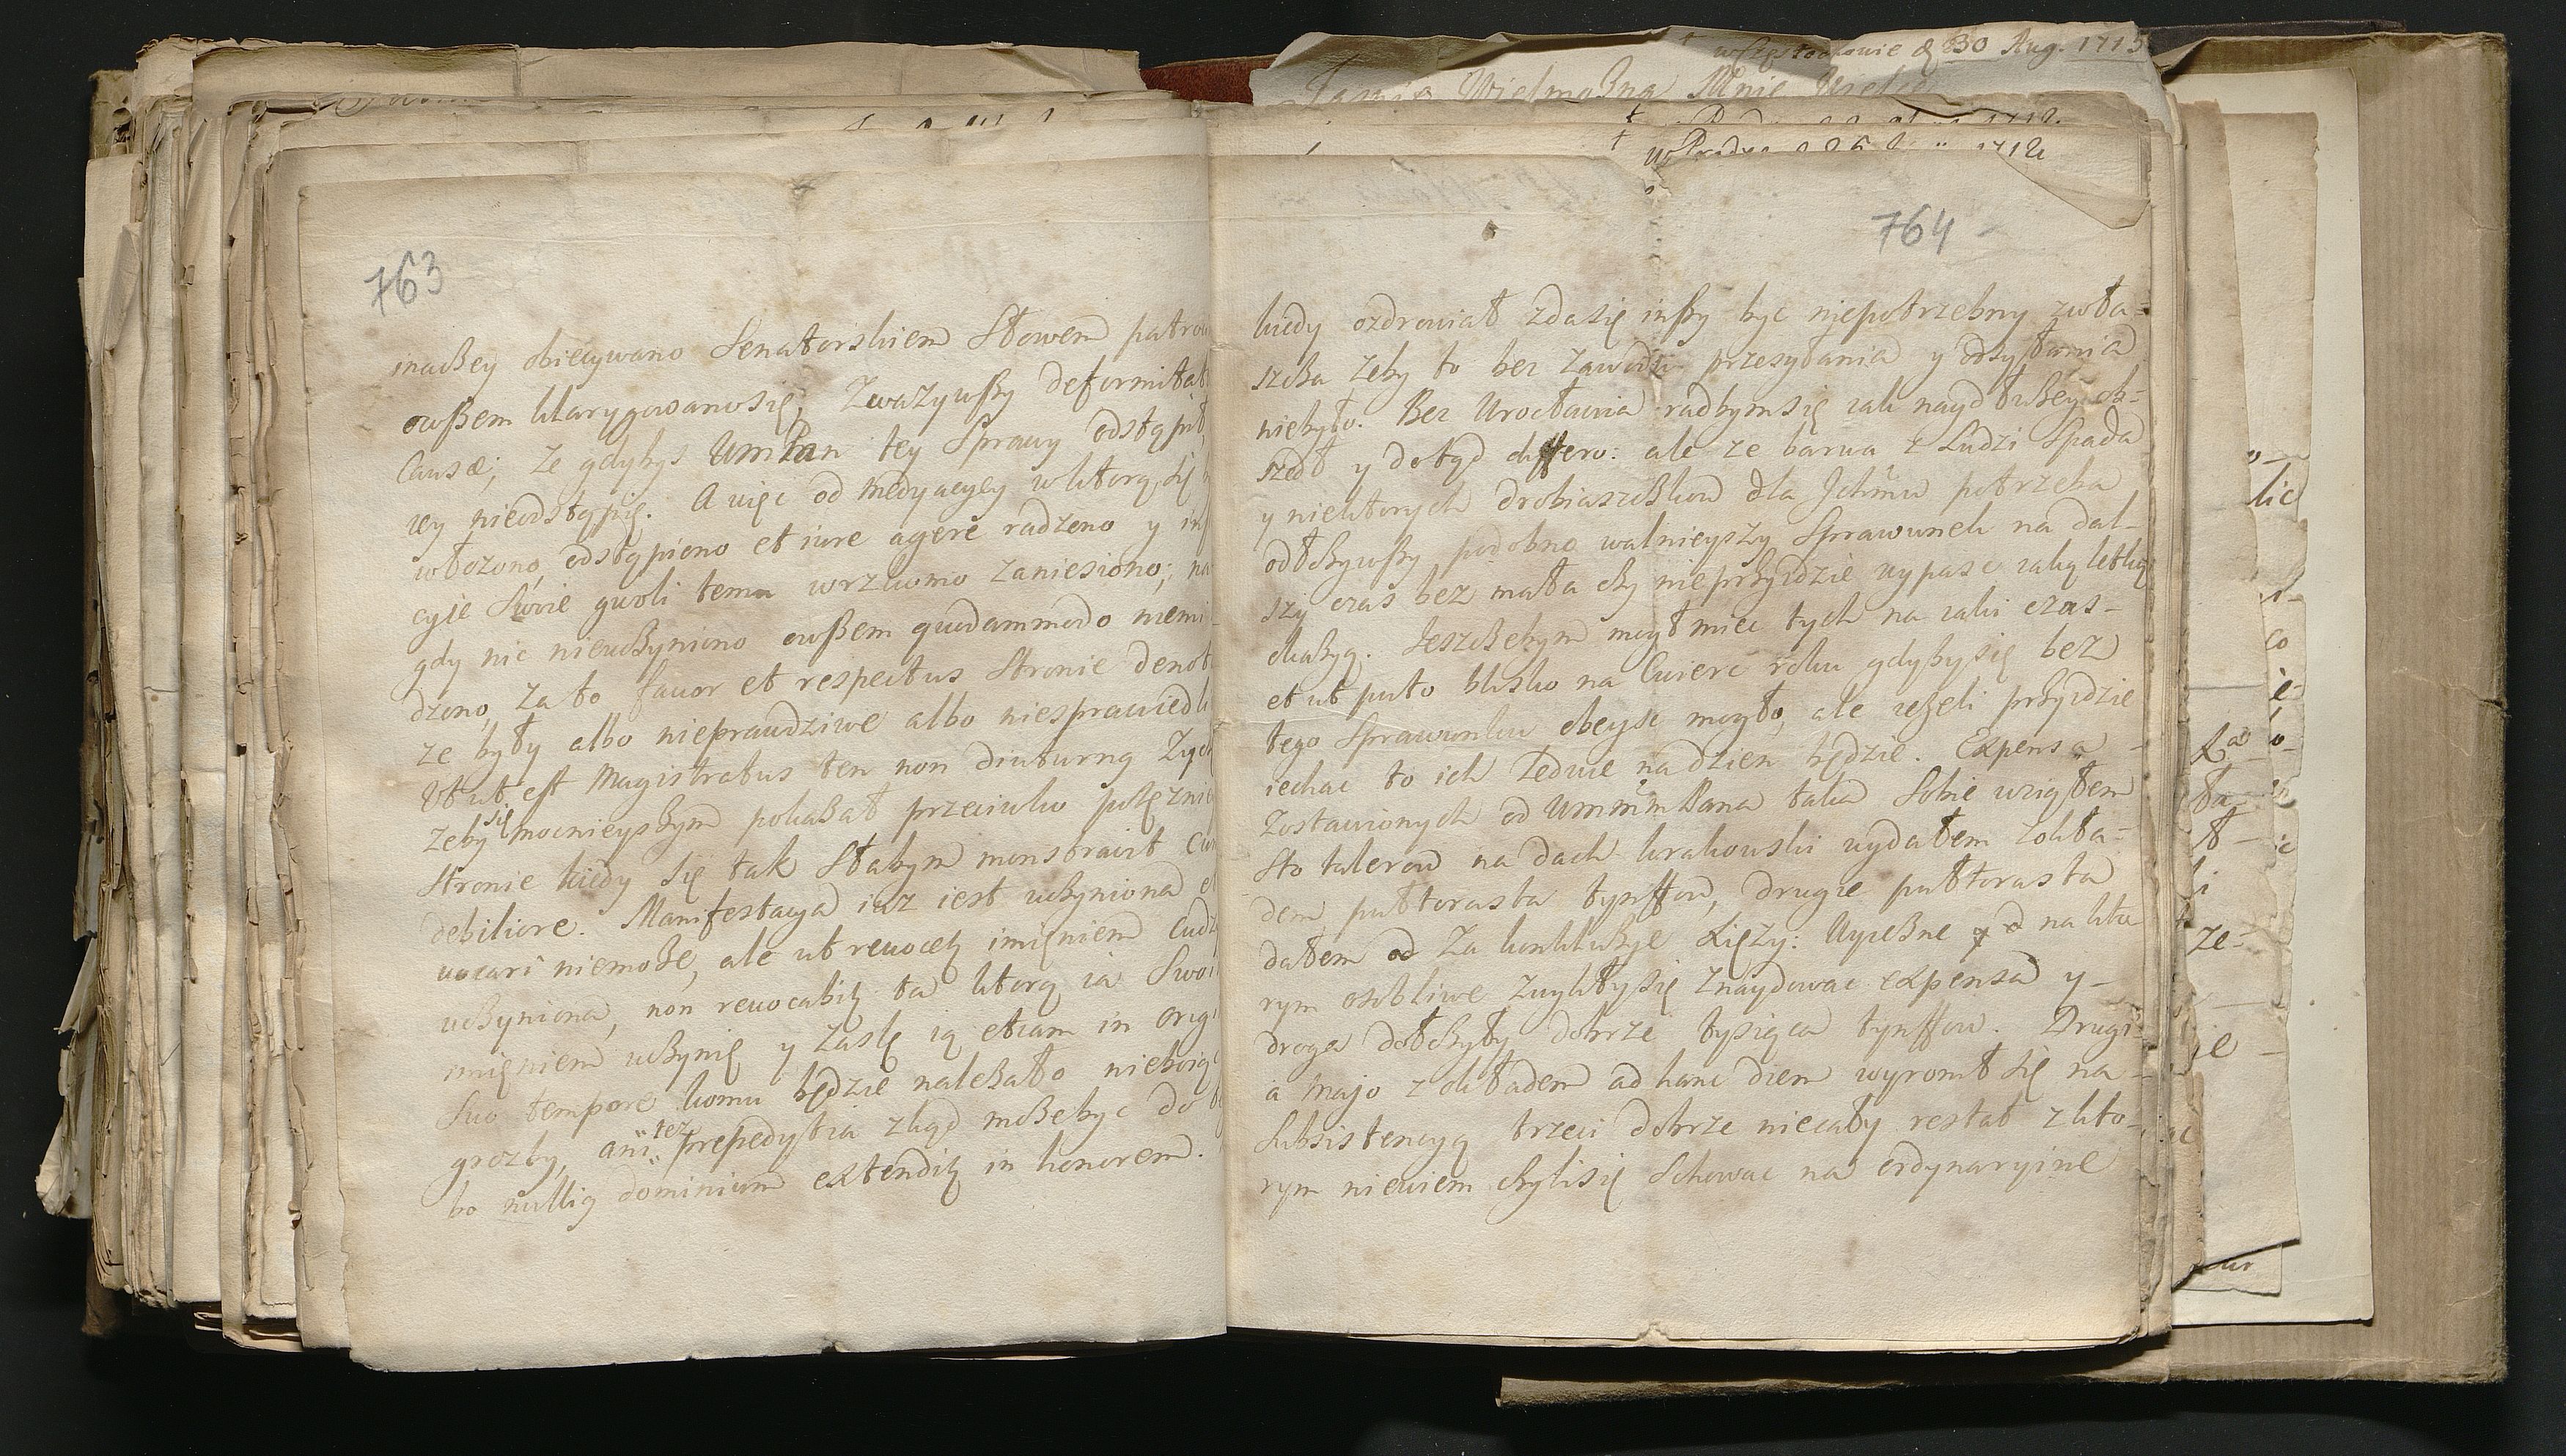 w Częstochowie d 30 Aug. 1715
Jasnie Wielmożna Mnie Wielce
1712
1712
763
inaßey obiecywano Senatorskiem Słowem patro
owßem klarygowanosię, Zwazywßy deformitat
Causæ, ze gdybyś tey Sprawy odstąpił,
iey nieodstąpię. A więc od Medyacyey wktorą się
włożono, odstąpiono et iure agere radzono y in
cyie Swoie gwoli temu wrzkomo zaniesiono; na
gdy nic nieuczyniono owßem quodammodo niemi
dzono, za to favor et respectus Stronie denot
ze były albo nieprawdziwe albo niesprawiedli
Ut ut est Magistratus ten non diuturną Zyc
zeby się mocnieyßym pokazał przeciwko potęzni
Stronie kiedy się tak Słabym monstravit cum
debiliore. Manifestacya iuz iest uczyniona
vocari niemoże, ale ut revocetʒ imięniem Cudz
uczyniona, non revocabitʒ ta ktorą ia Swoi
imięniem uczynię y zaslę ią etiam in orig
Suo tempore komu będzie należało nieboię
grozby, ani też prepedytia zkąd możebyc do
bo nullię dominium extenditʒ in honorem.
764
kiedy ozdrowiał zdasię inßy byc niepotrzebny zwła=
szcza żeby to bez zawodu przesyłania y odsyłania
niebyło. Bez Wrocławia radbymsię iak naydłużey ob=
szedł y dotąd differo: ale ze barwa z Ludzi Spada
y niektorych drobiaszczkow dla Jchmciu potrzeba
odłożywßy podobno walnieyszy Sprawunek na dal-
szy czas bez mała czy nieprzyidzie wypasc iaką letką
okazyą. Jeszczebym mogł miec tych na iaki czas-
et ut puto blisko na Cwierć roku gdybysię bez
tego Sprawunku obeysc mogło, ale ieżeli przyidzie
iechac to ich ledwie na dzien będzie. Expensa -
zostawionych od Pana taka Sobie wziąłem
Sto talerow na dach krakowski wydałem zokła=
dem, pułtorasta tynffow, drugie pułtorasta
dałem za konkluzye Xięzy: Wyiezne na kto
rym osobliwe zwykłysię znaydowac expensa y -
droga dołożyły dobrze tysiąca tynffow. Drugi
a majo z okładem ad hanc diem wyronił się na -
Subsistencyą trzeci dobrze niecały restat z kto-
rym niewiem czylisię Schowac na ordynaryine